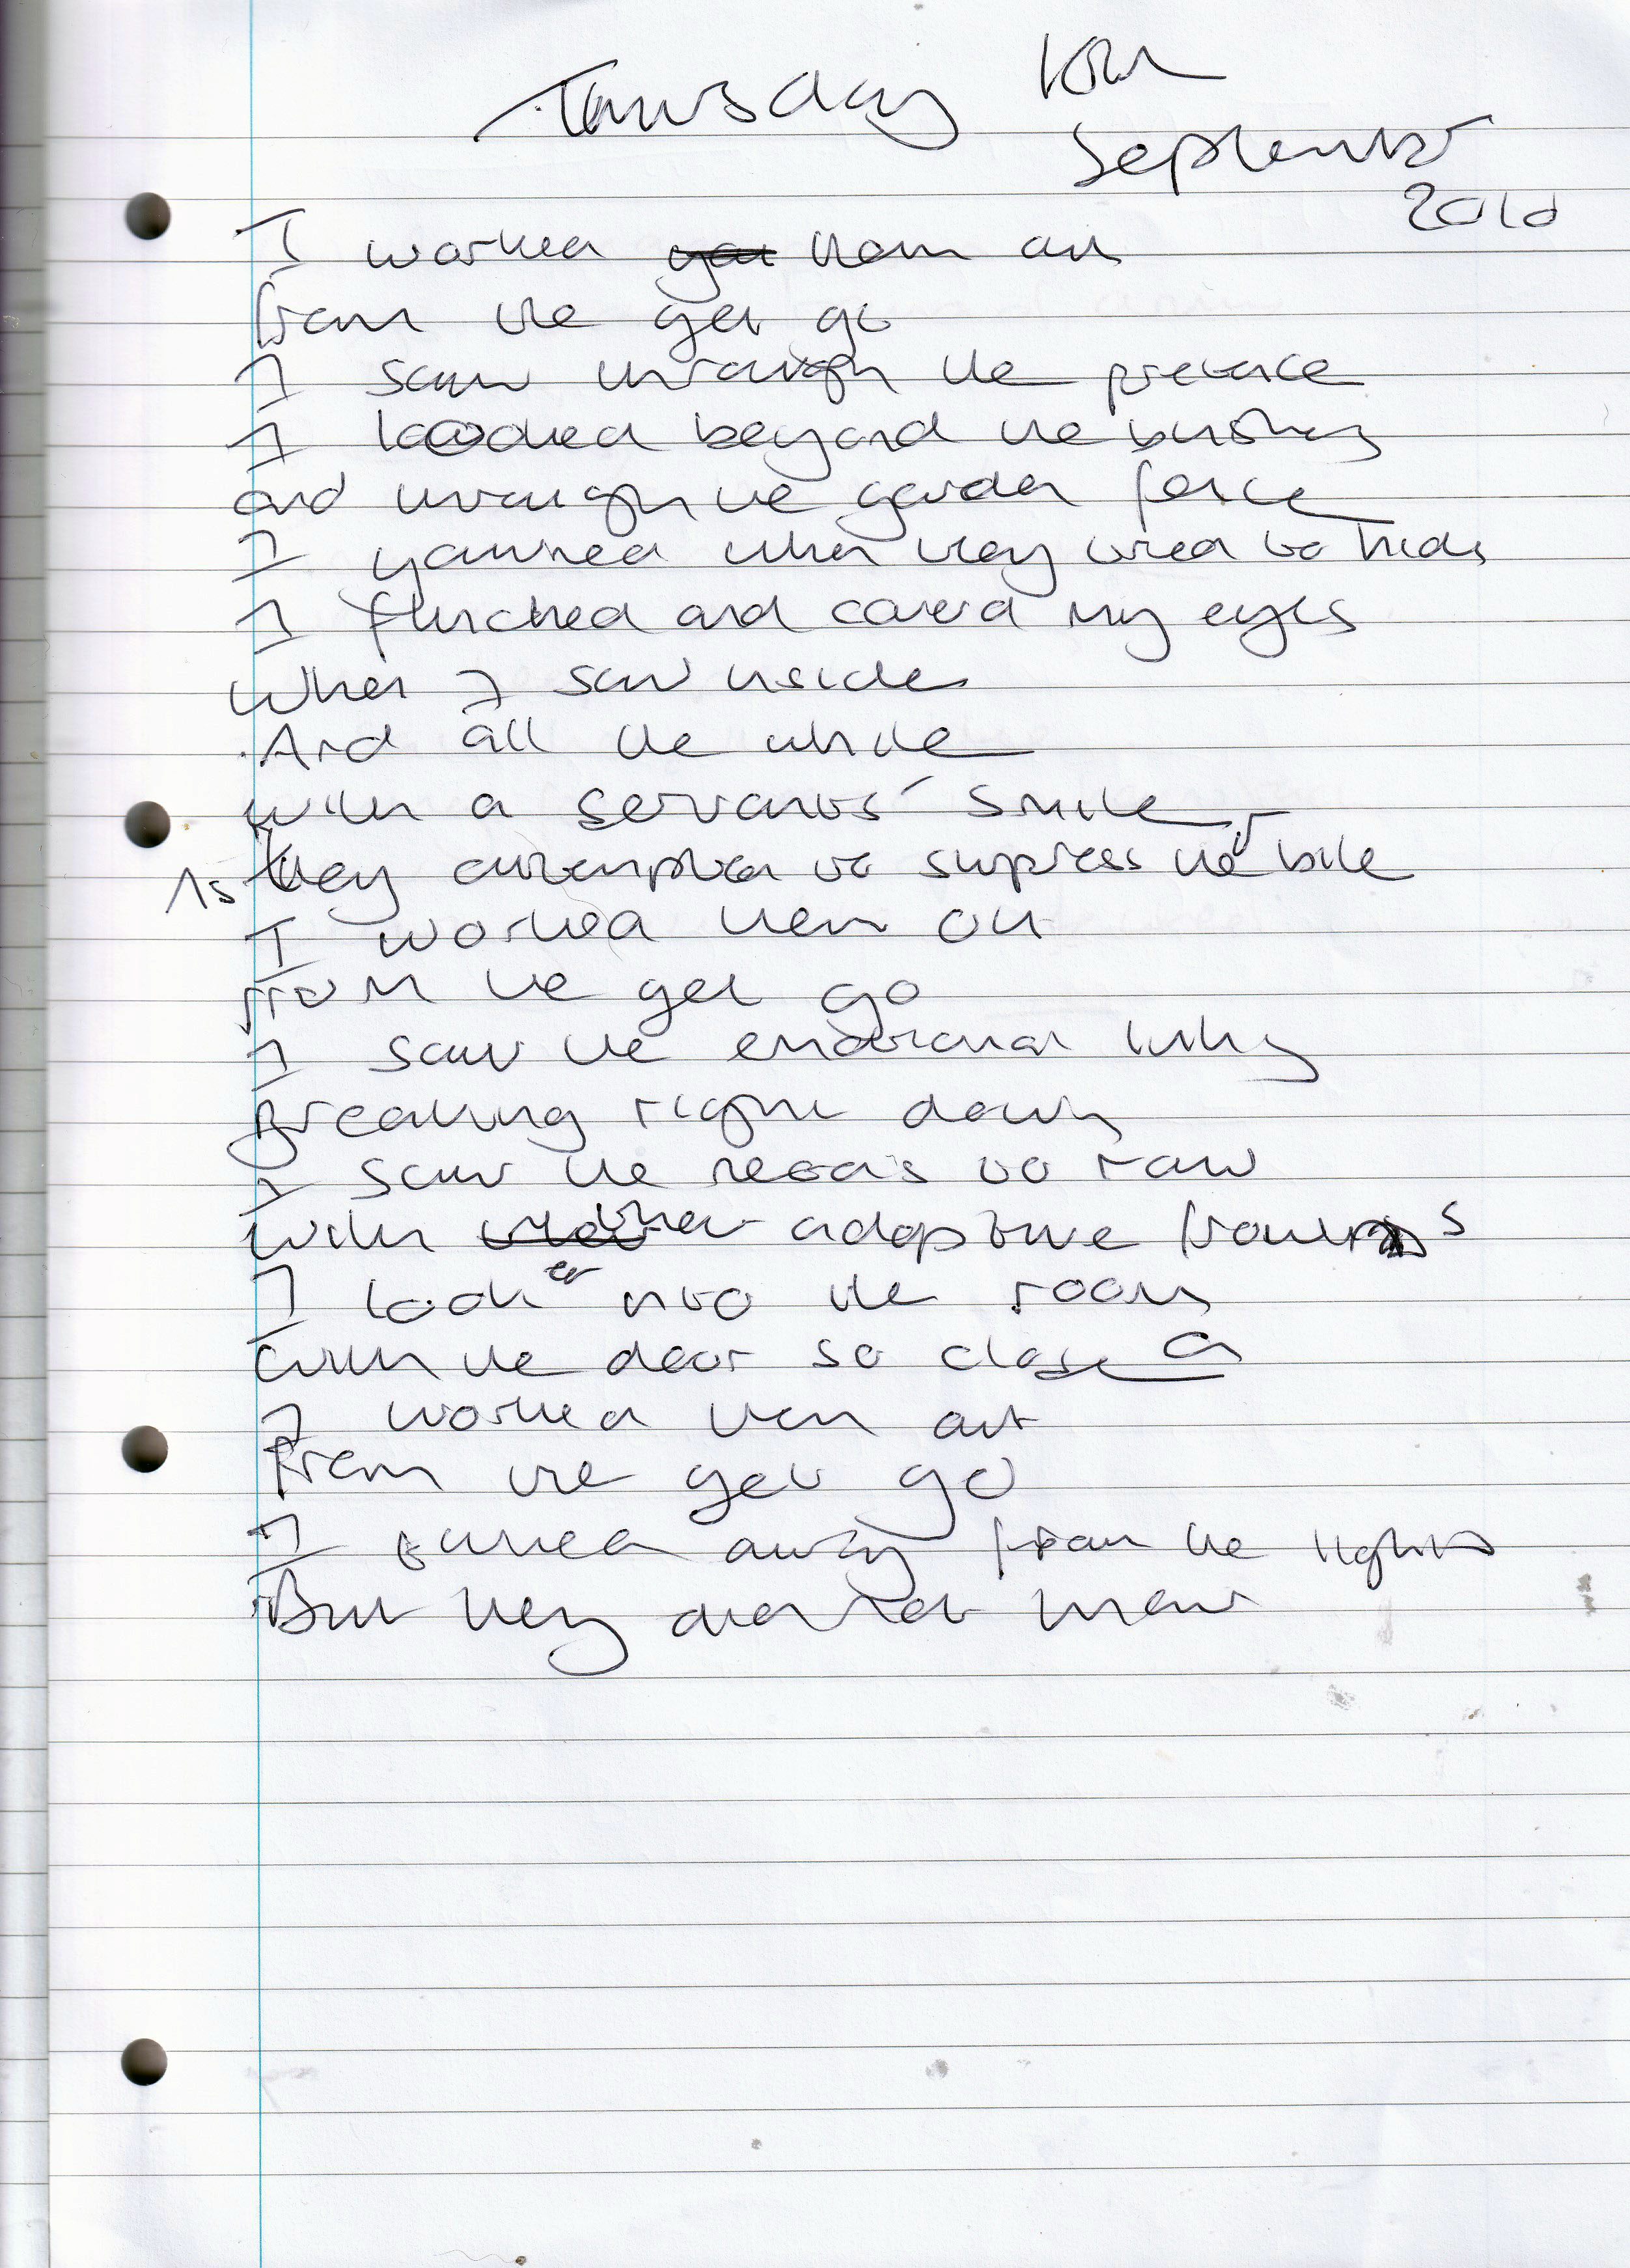 Thursday 10th
September
2010
I worked you them out
from the get go
I saw through the pretence
I looked beyond the bushes
and through the garden fence
I yawned when they tried to hide
I flinched and covered my eyes
when I saw inside
And all the while
with a servants' smile
As they attempted to supress their bile
I worked them out
from the get go
I saw the
Breaking right down
I saw the to raw
with their adoptive frowns
I looked into the room
with the door so closed
I worked them out
from the get go
I turned away from the lights
But they did not know